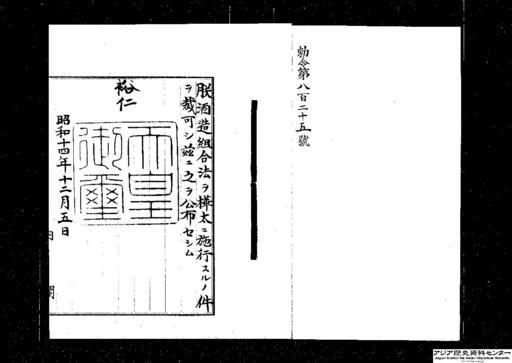 勅令第八百二十五號
朕酒造組合法ヲ樺太ニ施行スルノ件
ヲ裁可シ茲ニ之ヲ公布セシム
裕仁
天皇
御璽
昭和十四年十二月五日
内閣
アジア歴史資料センター
Japan Center for Asian Historical Records